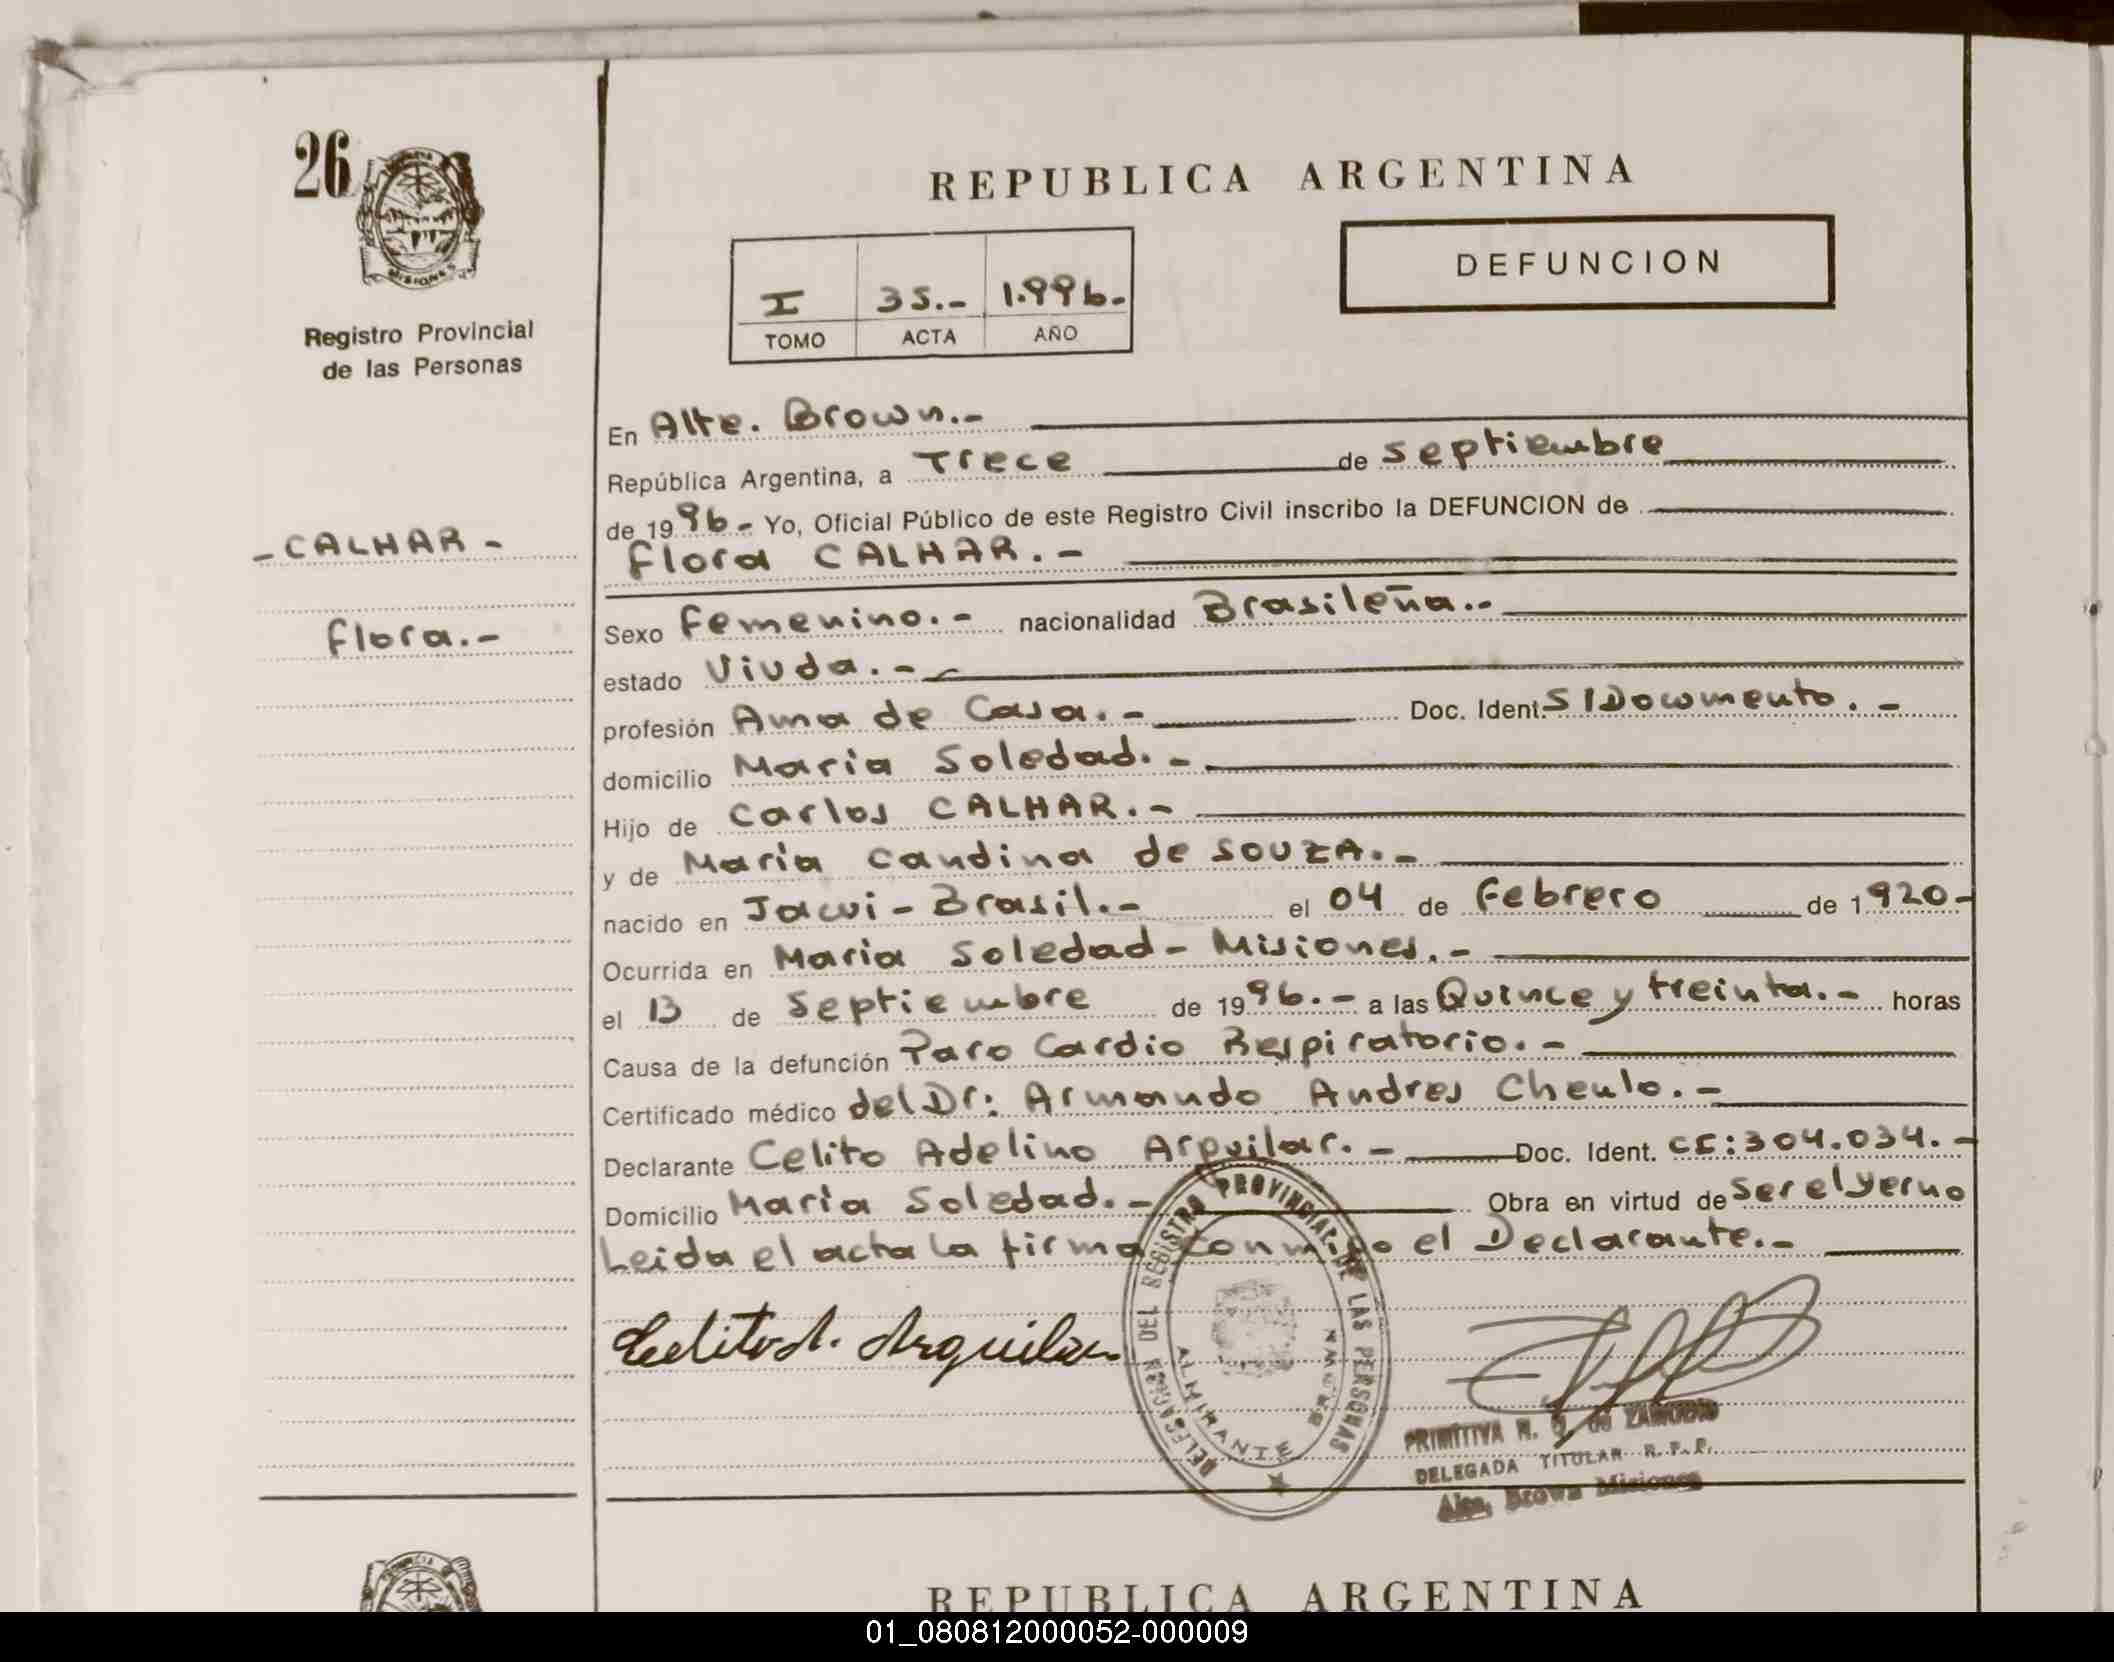 26
MISIONES
Registro Provincial
de las Personas
- CALHAR -
Flora.-
REPUBLICA ARGENTINA
I 35.- 1.996.-
TOMO ACTA AÑO
DEFUNCION
En Alte. Brown.-
República Argentina, a Trece de septiembre
de 1996.- Yo, Oficial Público de este Registro Civil inscribo la DEFUNCION de
Flora CALHAR.-
Sexo Femenino.- nacionalidad Brasileña.-
estado Viuda.-
profesión Ama de Casa.- Doc. Ident. S/Documento.-
domicilio Maria Soledad.-
Hijo de Carlos CALHAR.-
y de Maria Candina de SOUZA.-
nacido en - Brasil.- el 04 de Febrero de 1920-
Ocurrida en Maria Soledad - Misiones.-
el 13 de Septiembre de 1996.- a las Quince y treinta.- horas
Causa de la defunción Paro Cardio Respiratorio.-
Certificado médico del Dr: Armando Andres Cheulo.-
Declarante Celito Adelino Arguilar.- Doc. Ident. CI:304.034.-
Domicilio Maria Soledad.- Obra en virtud de Ser el Yerno
Leida el acta la firma conmigo el Declarante.-
Celito A. Arguilar
DELEGACION DEL REGISTRO PROVINCIAL DE LAS PERSONAS
ALMIRANTE BROWN
PRIMITIVA N. de ZAMUDIO
DELEGADA TITULAR R.P.P.
Alte. Brown Misiones
REPUBLICA ARGENTINA
01_080812000052-000009